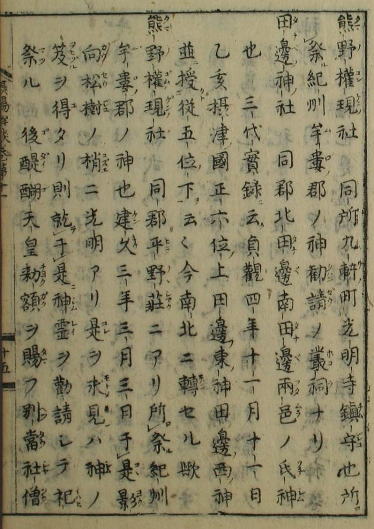 熊野權現社　同所九軒町光明寺鎮守也所
祭紀州牟婁郡ノ神勧請ノ叢祠ナリ
田邊神社　同郡北田邊南田邊兩邑ノ氏神
也　三代實録云貞觀四年十一月十一日
乙亥摂津國正六位上田邊東神田邊西神
並授從五位下云〱今南北ニ轉セル歟
熊野權現社　同郡平野莊ニアリ所祭紀州
牟婁郡ノ神也建久三年三月三日于是影
向松樹ノ梢ニ光明アリ是ヲ求見ハ神ノ
笈ヲ得タリ則乾于是神霊ヲ勧請シテ祀
祭ル　後醍醐天皇勅額ヲ賜フ別當社僧
十五